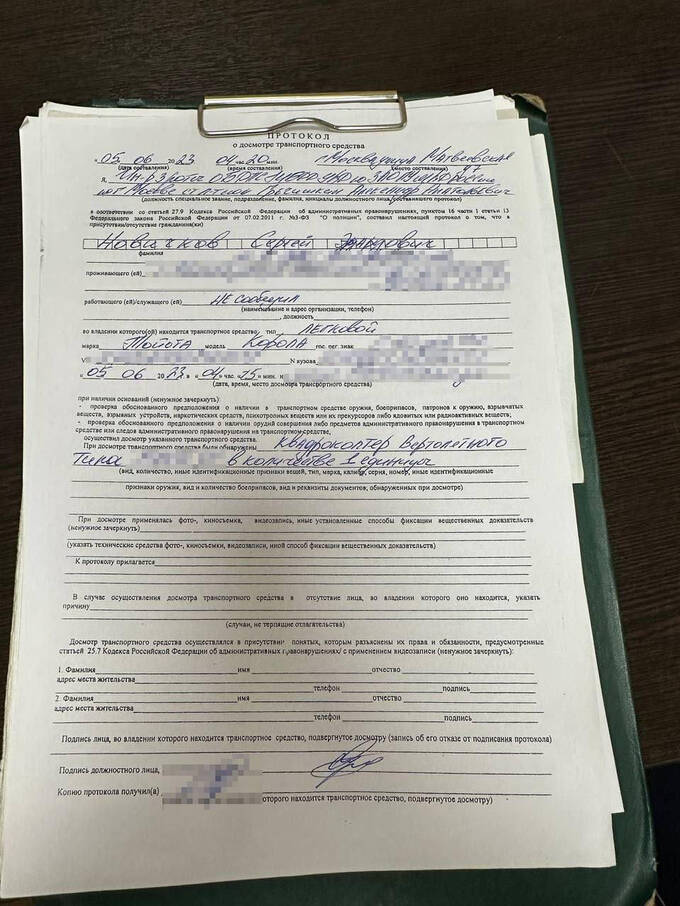 ПРОТОКОЛ
о досмотре транспортного средства
"05" 06 2023 04 час. 20 мин. г. Москва, улица Матвеевская
(дата составления) (время составления) (место составления)
Я,
(должность специальное звание, подразделение, фамилия, инициалы должностного лица, составившего протокол)
в соответствии со статьей 27.9 Кодекса Российской Федерации об административных правонарушениях, пунктом 16 части 1 статьи 13
Федерального закона Российской Федерации от 07.02.2011 г. №3-ФЗ "О полиции", составил настоящий протокол о том, что в
присутствии/отсутствие гражданина(ки)
Новичков Сергей Эдуардович
фамилия
проживающего (ей)
работающего (ей)/служащего (ей) не сообщил
(наименование и адрес организации, телефон)
, должность
во владении которого(ой) находится транспортное средство, тип легковой
марка Тойота модель Корола гос. рег. знак
V N кузова
"05" 06 2023 в "04" час. 25 мин. и
(дата, время, место досмотра транспортного средства)
при наличии оснований (ненужное зачеркнуть):
- проверка обоснованного предположения о наличии в транспортном средстве оружия, боеприпасов, патронов к оружию, взрывчатых
веществ, взрывных устройств, наркотических средств, психотропных веществ или их прекурсоров либо ядовитых или радиоактивных веществ;
- проверка обоснованного предположения о наличии орудий совершения либо предметов административного правонарушения в транспортном
средстве или следов административного правонарушения на транспортном средстве;
осуществил досмотр указанного транспортного средства.
При досмотре транспортного средства были обнаружены квадрокоптер вертолетного
типа в количестве 1 единицы
(вид, количество, иные идентификационные признаки вещей, тип, марка, калибр, серия, номер, иные идентификационные
признаки оружия, вид и количество боеприпасов, вид и реквизиты документов, обнаруженных при досмотре)
При досмотре применялась фото-, киносъемка, видеозапись, иные установленные способы фиксации вещественных доказательств
(ненужное зачеркнуть)
(указать технические средства фото-, киносъемки, видеозаписи, иной способ фиксации вещественных доказательств)
К протоколу прилагается
В случае осуществления досмотра транспортного средства в отсутствие лица, во владении которого оно находится, указать
причину
(случаи, не терпящие отлагательства)
Досмотр транспортного средства осуществлялся в присутствии понятых, которым разъяснены их права и обязанности, предусмотренные
статьей 25.7 Кодекса Российской Федерации об административных правонарушениях/ с применением видеозаписи (ненужное зачеркнуть):
1. Фамилия имя отчество
адрес места жительства
телефон подпись
2. Фамилия имя отчество
адрес места жительства
телефон подпись
Подпись лица, во владении которого находится транспортное средство, подвергнутое досмотру (запись об его отказе от подписания протокола)
Подпись должностного лица,
Копию протокола получил(а)
оторого находится транспортное средство, подвергнутое досмотру)